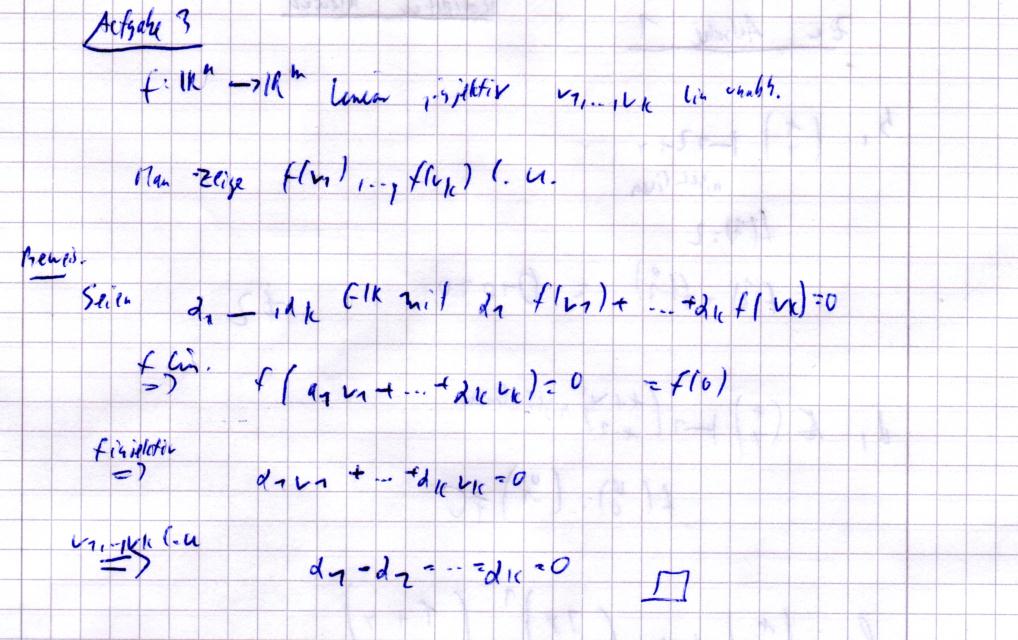 Aufgabe 3
f: ℝⁿ → ℝᵐ linear, injektiv v₁,...,vₖ lin unabh.
Man zeige f(v₁),..., f(vₖ) l. u.
Beweis.
Seien α₁ — , αₖ ∈ ℝ mit α₁ f(v₁) + ... + αₖ f(vₖ) = 0
f lin. ⇒ f(α₁ v₁ + ... + αₖ vₖ) = 0 = f(0)
f injektiv ⇒ α₁ v₁ + ... + αₖ vₖ = 0
v₁,..,vₖ l.u ⇒ α₁ = α₂ = ... = αₖ = 0 □